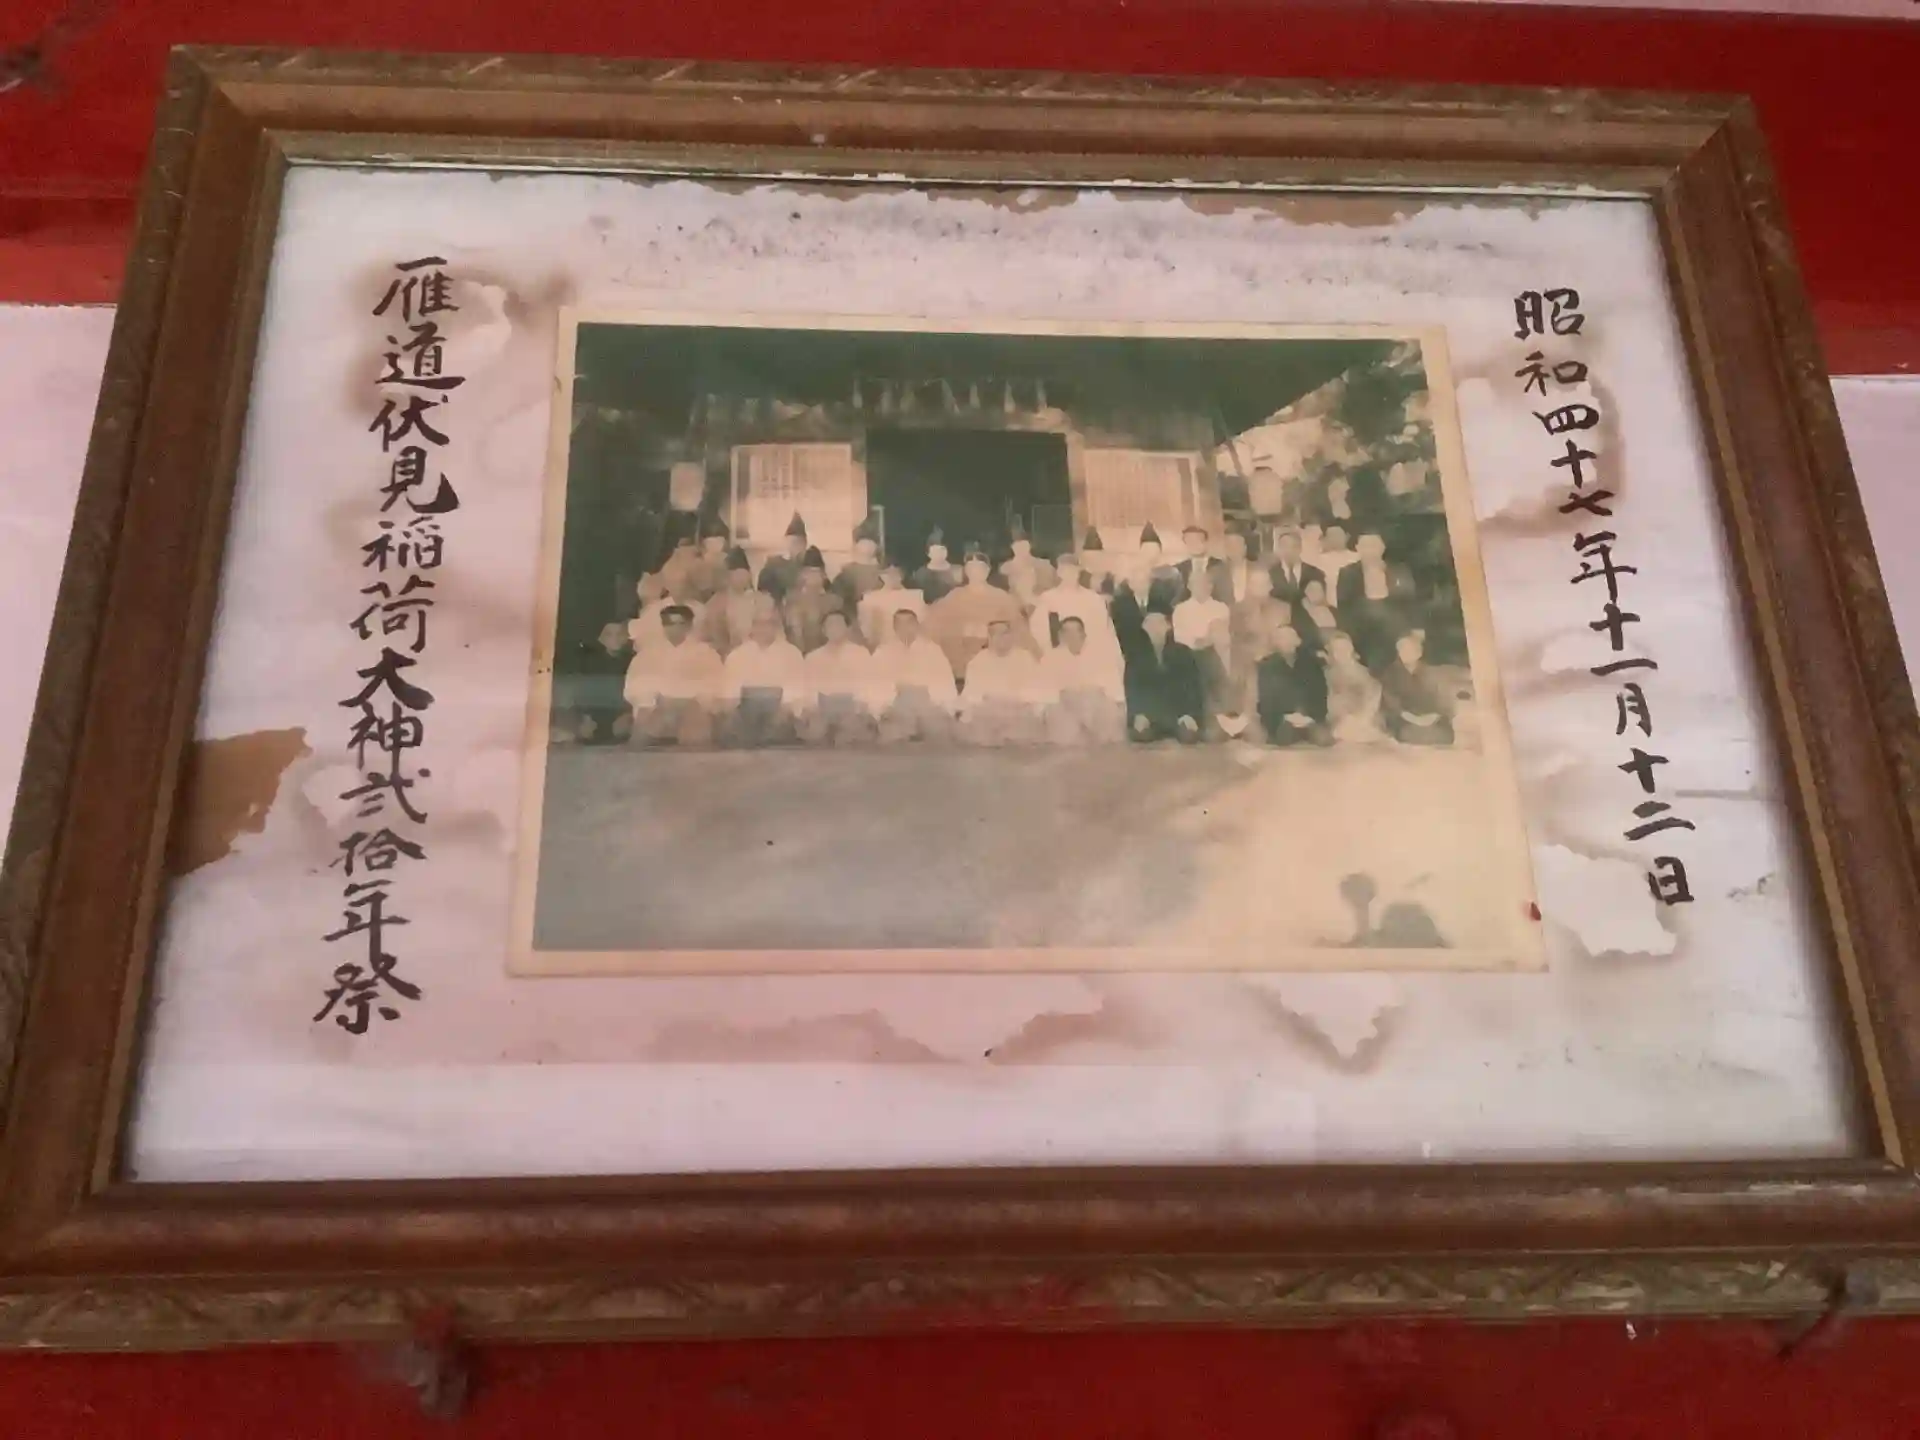 昭和四十七年十一月十二日
雁道伏見稲荷大神弐拾年祭